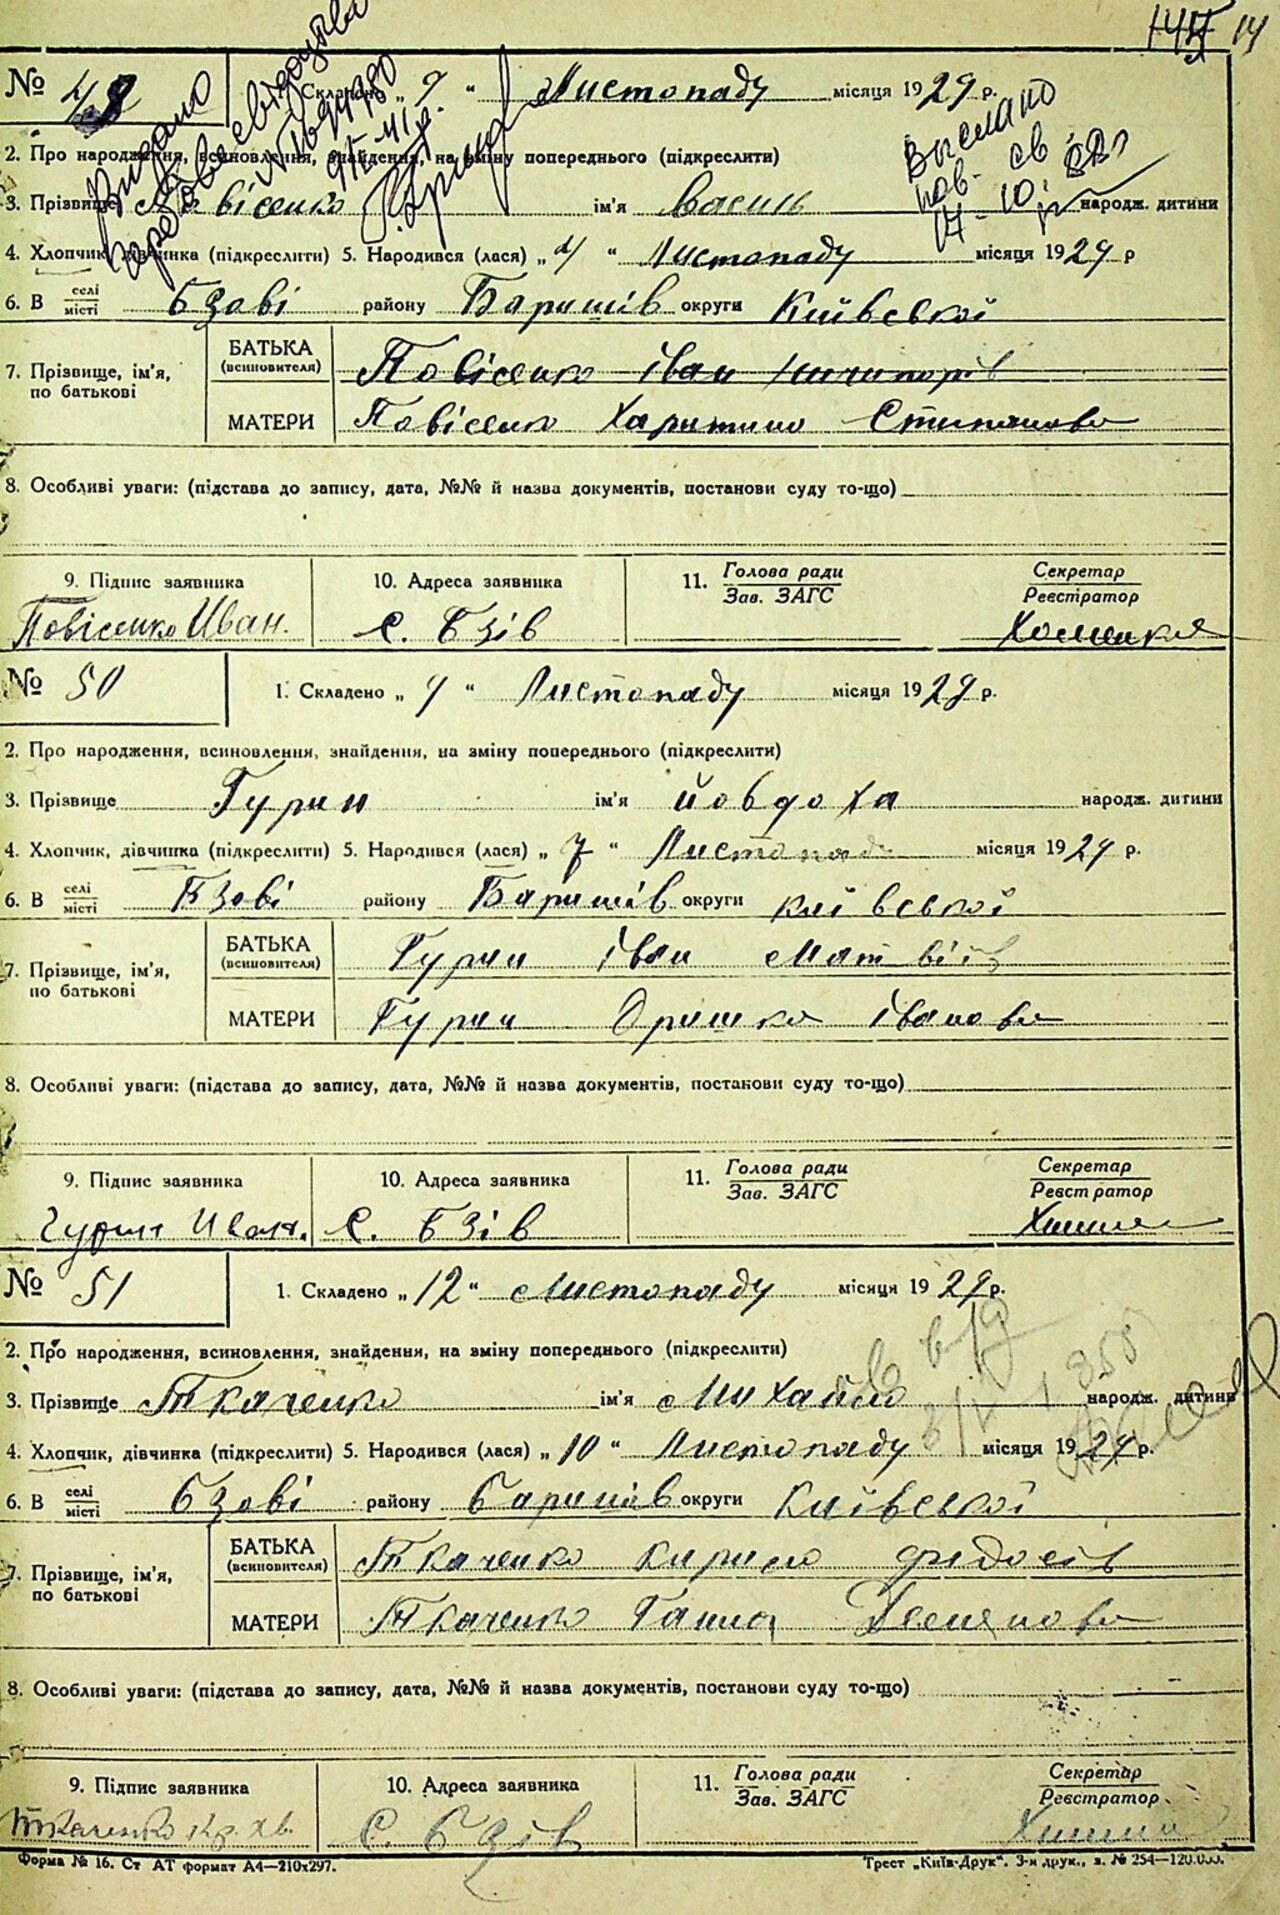 14
№ 48 Складено „ 9 “ Листопаду місяця 1929 р.
Видано
Высылано
2. Про народження, всиновлення, знайдення, на зміну попереднього (підкреслити)
3. Прізвище Павісенко ім'я Василь народж. дитини
4. Хлопчик, дівчинка (підкреслити) 5. Народився (лася) „ 4 “ Листопаду місяця 1929 р
6. В селі/місті Бзові району Баришів округи Київської
7. Прізвище, ім'я, по батькові
БАТЬКА (всиновителя) Павісенко Іван Ничипорів
МАТЕРИ Павісенко Харитина Степанова
8. Особливі уваги: (підстава до запису, дата, №№ й назва документів, постанови суду то-що)
9. Підпис заявника 10. Адреса заявника 11. Голова ради / Зав. ЗАГС Секретар / Реєстратор
Павісенко Иван. с. Бзів
№ 50 1. Складено „ 9 “ Листопаду місяця 1929 р.
2. Про народження, всиновлення, знайдення, на зміну попереднього (підкреслити)
3. Прізвище Гурин ім'я Йовдоха народж. дитини
4. Хлопчик, дівчинка (підкреслити) 5. Народився (лася) „ 7 “ Листопаду місяця 1929 р.
6. В селі/місті Бзові району Баришів округи Київської
7. Прізвище, ім'я, по батькові
БАТЬКА (всиновителя) Гурин Іван Матвіїв
МАТЕРИ Гурин Оришка Іванова
8. Особливі уваги: (підстава до запису, дата, №№ й назва документів, постанови суду то-що)
9. Підпис заявника 10. Адреса заявника 11. Голова ради / Зав. ЗАГС Секретар / Реєстратор
Гурин Иван. с. Бзів
№ 51 1. Складено „ 12 “ Листопаду місяця 1929 р.
2. Про народження, всиновлення, знайдення, на зміну попереднього (підкреслити)
3. Прізвище Ткаченко ім'я Михайло народж. дитини
4. Хлопчик, дівчинка (підкреслити) 5. Народився (лася) „ 10 “ Листопаду місяця 1929 р.
6. В селі/місті Бзові району Баришів округи Київської
7. Прізвище, ім'я, по батькові
БАТЬКА (всиновителя) Ткаченко Кирило Федосів
МАТЕРИ Ткаченко Ганна Демянова
8. Особливі уваги: (підстава до запису, дата, №№ й назва документів, постанови суду то-що)
9. Підпис заявника 10. Адреса заявника 11. Голова ради / Зав. ЗАГС Секретар / Реєстратор
Ткаченко с. Бзів
Форма № 16. Ст АТ формат А4—210х297. Трест „Київ-Друк“. 3-я друк., з. № 254—120.000.